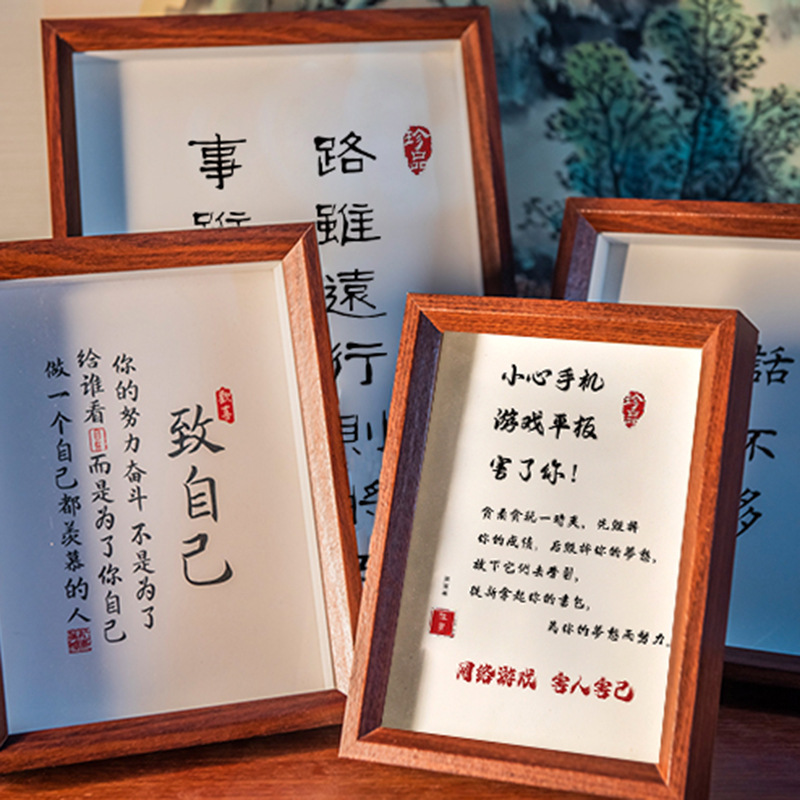 珍品
路雖遠行則將
事雖
致自己
你的努力奋斗 不是为了
给谁看 而是为了你自己
做一个自己都羡慕的人
話不多
珍品
小心手机
游戏平板
害了你!
贪看贪玩一时爽,先毁掉
你的成绩,后毁掉你的梦想,
放下它们去学习,
重新拿起你的书包,
为你的梦想而努力。
网络游戏 害人害己